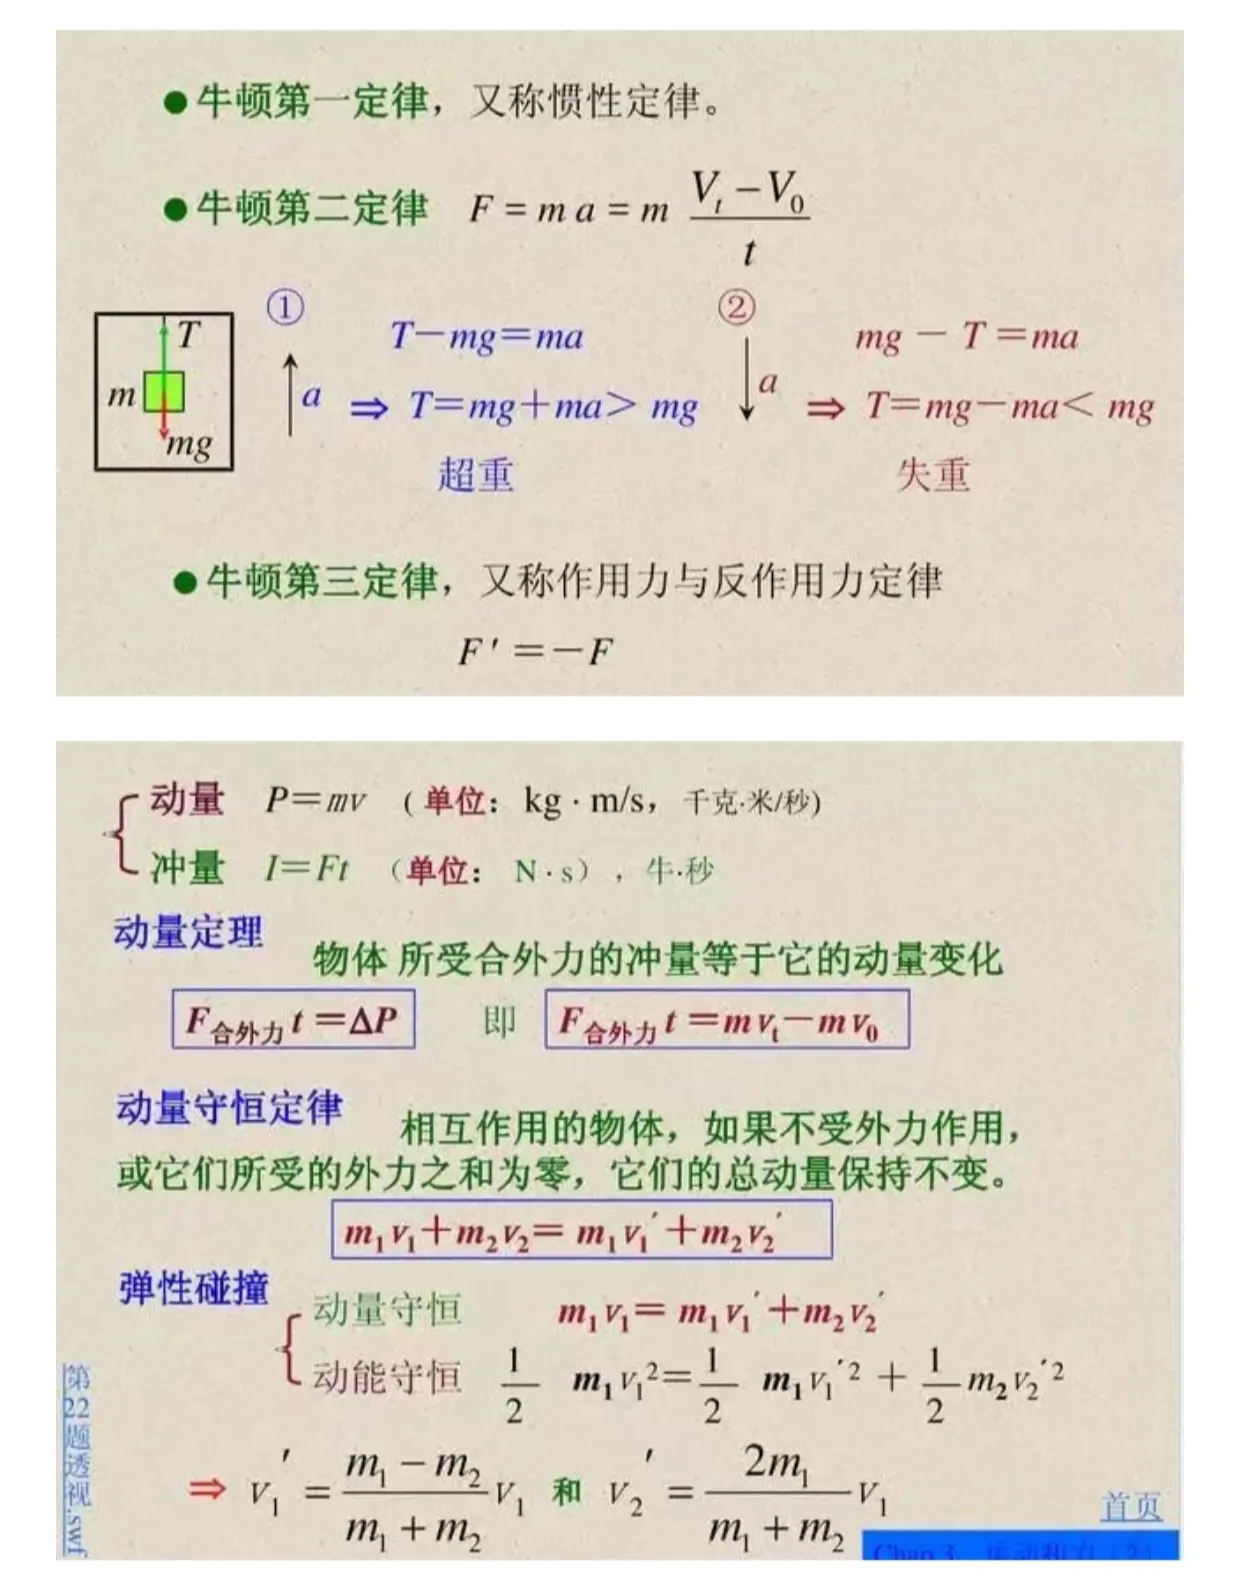 ●牛顿第一定律，又称惯性定律。
●牛顿第二定律 F = m a = m (Vt − V0) / t
① ②
T
T－mg＝ma
mg － T ＝ma
m
a
⇒ T＝mg＋ma＞ mg
a
⇒ T＝mg－ma＜ mg
mg
超重
失重
●牛顿第三定律，又称作用力与反作用力定律
F′ ＝－F
动量 P＝mv (单位：kg · m/s，千克·米/秒)
冲量 I＝Ft （单位： N · s），牛·秒
动量定理
物体 所受合外力的冲量等于它的动量变化
F合外力 t ＝ΔP 即 F合外力 t ＝m vt－m v0
动量守恒定律
相互作用的物体，如果不受外力作用，
或它们所受的外力之和为零，它们的总动量保持不变。
m1 v1＋m2 v2＝ m1 v1′＋m2 v2′
弹性碰撞
动量守恒 m1 v1＝ m1 v1′＋m2 v2′
动能守恒 1/2 m1 v1²＝1/2 m1 v1′² ＋ 1/2 m2 v2′²
⇒ v1′ = (m1 − m2) / (m1 + m2) v1 和 v2′ = 2m1 / (m1 + m2) v1
第22题透视.swf
首页
Chap 3